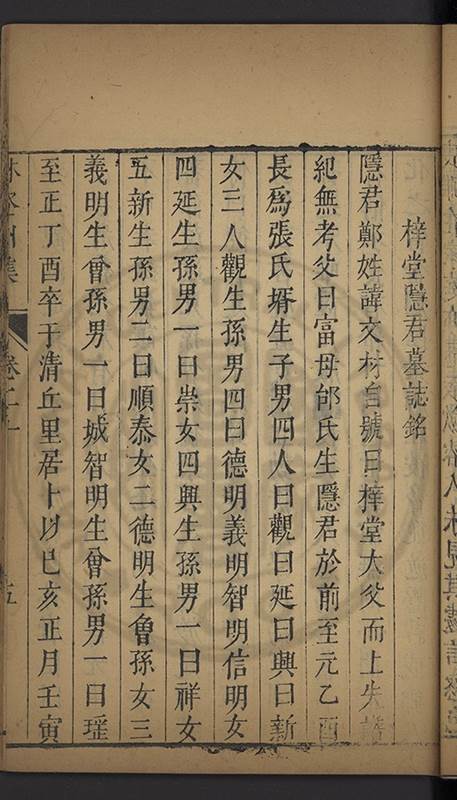 梓堂隱君墓誌銘
隱君鄭姓諱文材自號曰梓堂大父而上失譜
紀無考父曰富母邰氏生隱君於前至元乙酉
長爲張氏壻生子男四人曰觀曰延曰興曰新
女三人觀生孫男四曰德明義明智明信明女
四延生孫男一曰崇女四興生孫男一曰祥女
五新生孫男二曰順泰女二德明生曾孫女三
義明生曾孫男一曰城智明生曾孫男一曰瑶
至正丁酉卒于清丘里居卜以已亥正月壬寅
集
卷
五